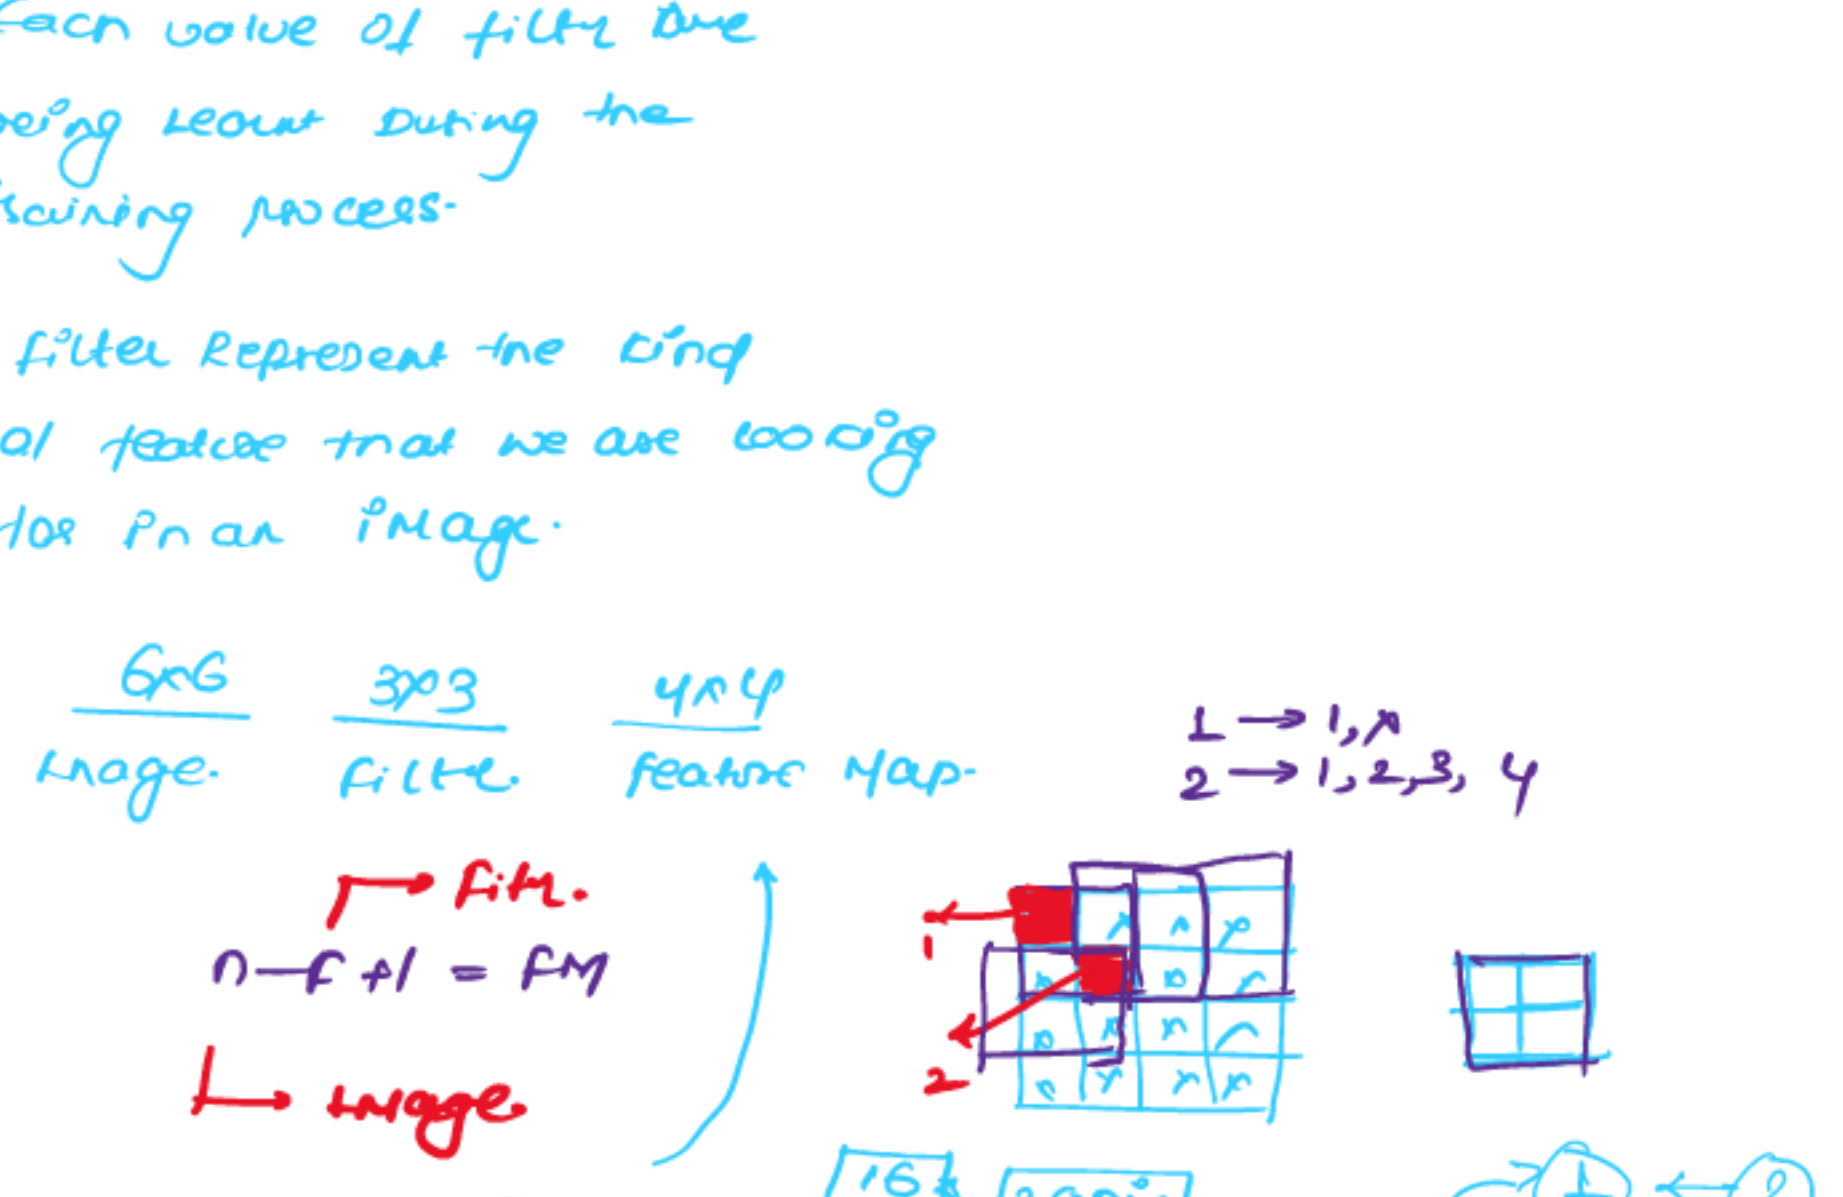 Each value of filter are
being learnt During the
training process.
filter Represent the kind
of feature that we are looking
for in an image.
6x6 3x3 4x4
Image. filter. feature Map.
1 → 1, x
2 → 1, 2, 3, 4
filter.
n - f + 1 = FM
Image.
1
2
16